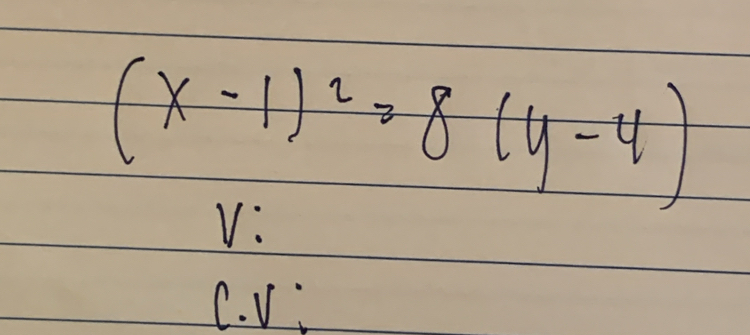 (x - 1)² = 8 (y - 4)
V:
C.V: